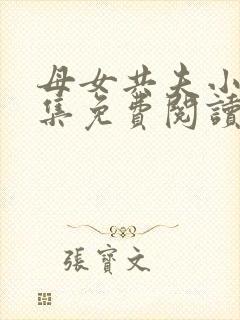 母女共夫小
集免費閱讀
張寶文